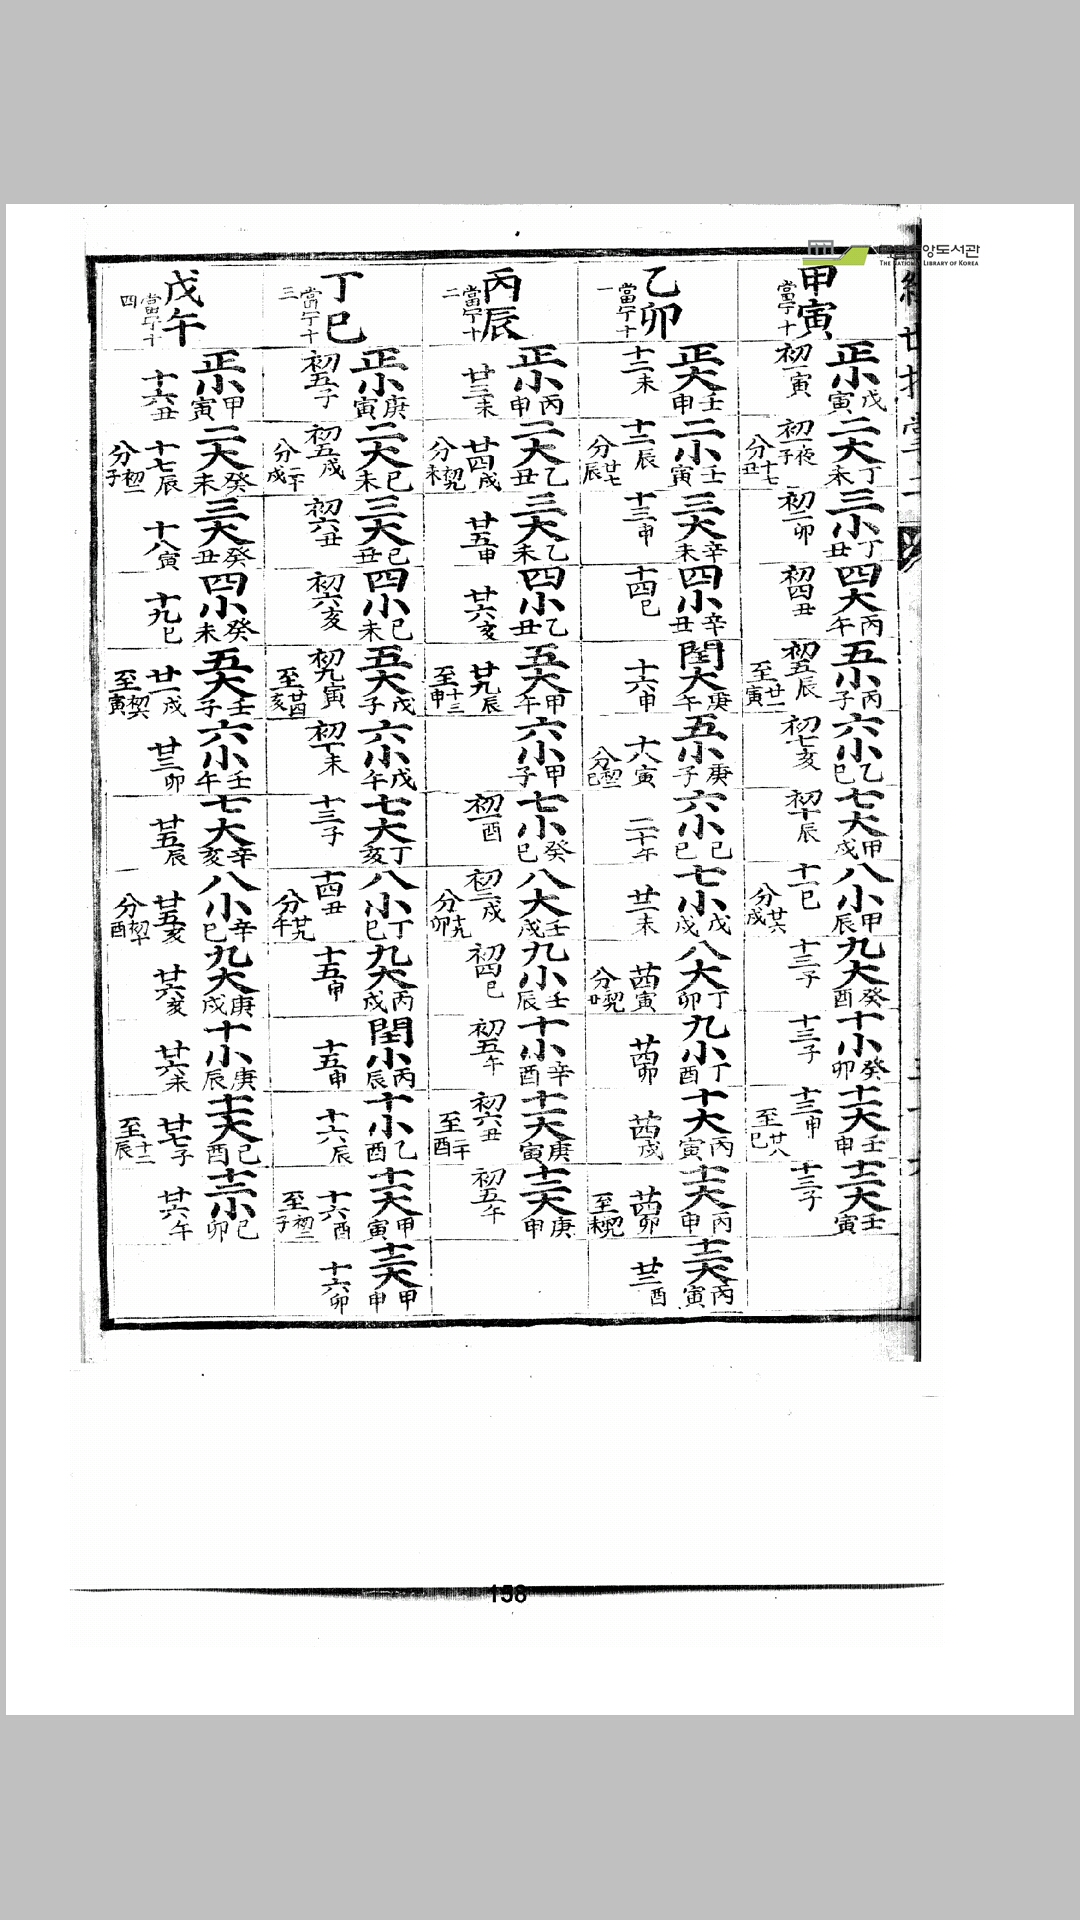 甲寅 當宁十
正小 戊寅 初一寅
二大 丁未 初一夜子 分十七丑
三小 丁丑 初二卯
四大 丙午 初四丑
五小 丙子 初五辰 至廿一寅
六小 乙巳 初七亥
七大 甲戌 初十辰
八小 甲辰 十一巳 分廿六戌
九大 癸酉 十三子
十小 癸卯 十三子
十一大 壬申 十三申 至廿八巳
十二大 壬寅 十三子
乙卯 當宁十一
正大 壬申 十二未
二小 壬寅 十二辰 分廿七辰
三大 辛未 十三申
四小 辛丑 十四巳
閏大 庚午 十六申
五小 庚子 十八寅
六小 己巳 二十午
七小 戊戌 廿一未
八大 丁卯 寅
九小 丁酉 卯
十大 丙寅 戌
十一大 丙申 卯
十二大 丙寅 廿三酉
丙辰 當宁十二
正小 丙申 廿三未
二大 乙丑 廿四戌
三大 乙未 廿五申
四小 乙丑 廿六亥
五大 甲午 廿九辰 至十三申
六小 甲子
七小 癸巳 初一酉
八大 壬戌 初三戌 分十九卯
九小 壬辰 初四巳
十小 辛酉 初五午
十一大 庚寅 初六丑 至二十酉
十二大 庚申 初五午
丁巳 當宁十三
正小 庚寅 初五子
二大 己未 初五戌 分二十戌
三大 己丑 初六丑
四小 己未 初六亥
五大 戊子 初九寅 至廿四亥
六小 戊午 初十未
七大 丁亥 十三子
八小 丁巳 十四丑 分廿九午
九大 丙戌 十五申
閏小 丙辰 十五申
十小 乙酉 十六辰
十一大 甲寅 十六酉 至初二子
十二大 甲申 十六卯
戊午 當宁十四
正小 甲寅 十六丑
二大 癸未 十七辰 分初二子
三大 癸丑 十八寅
四小 癸未 十九巳
五大 壬子 廿一戌
六小 壬午 廿三卯
七大 辛亥 廿五辰
八小 辛巳 廿五亥 分初十酉
九大 庚戌 廿六亥
十小 庚辰 廿六未
十一大 己酉 廿七子 至十二辰
十二小 己卯 廿六午
앙도서관
THE NATIONAL LIBRARY OF KOREA
158